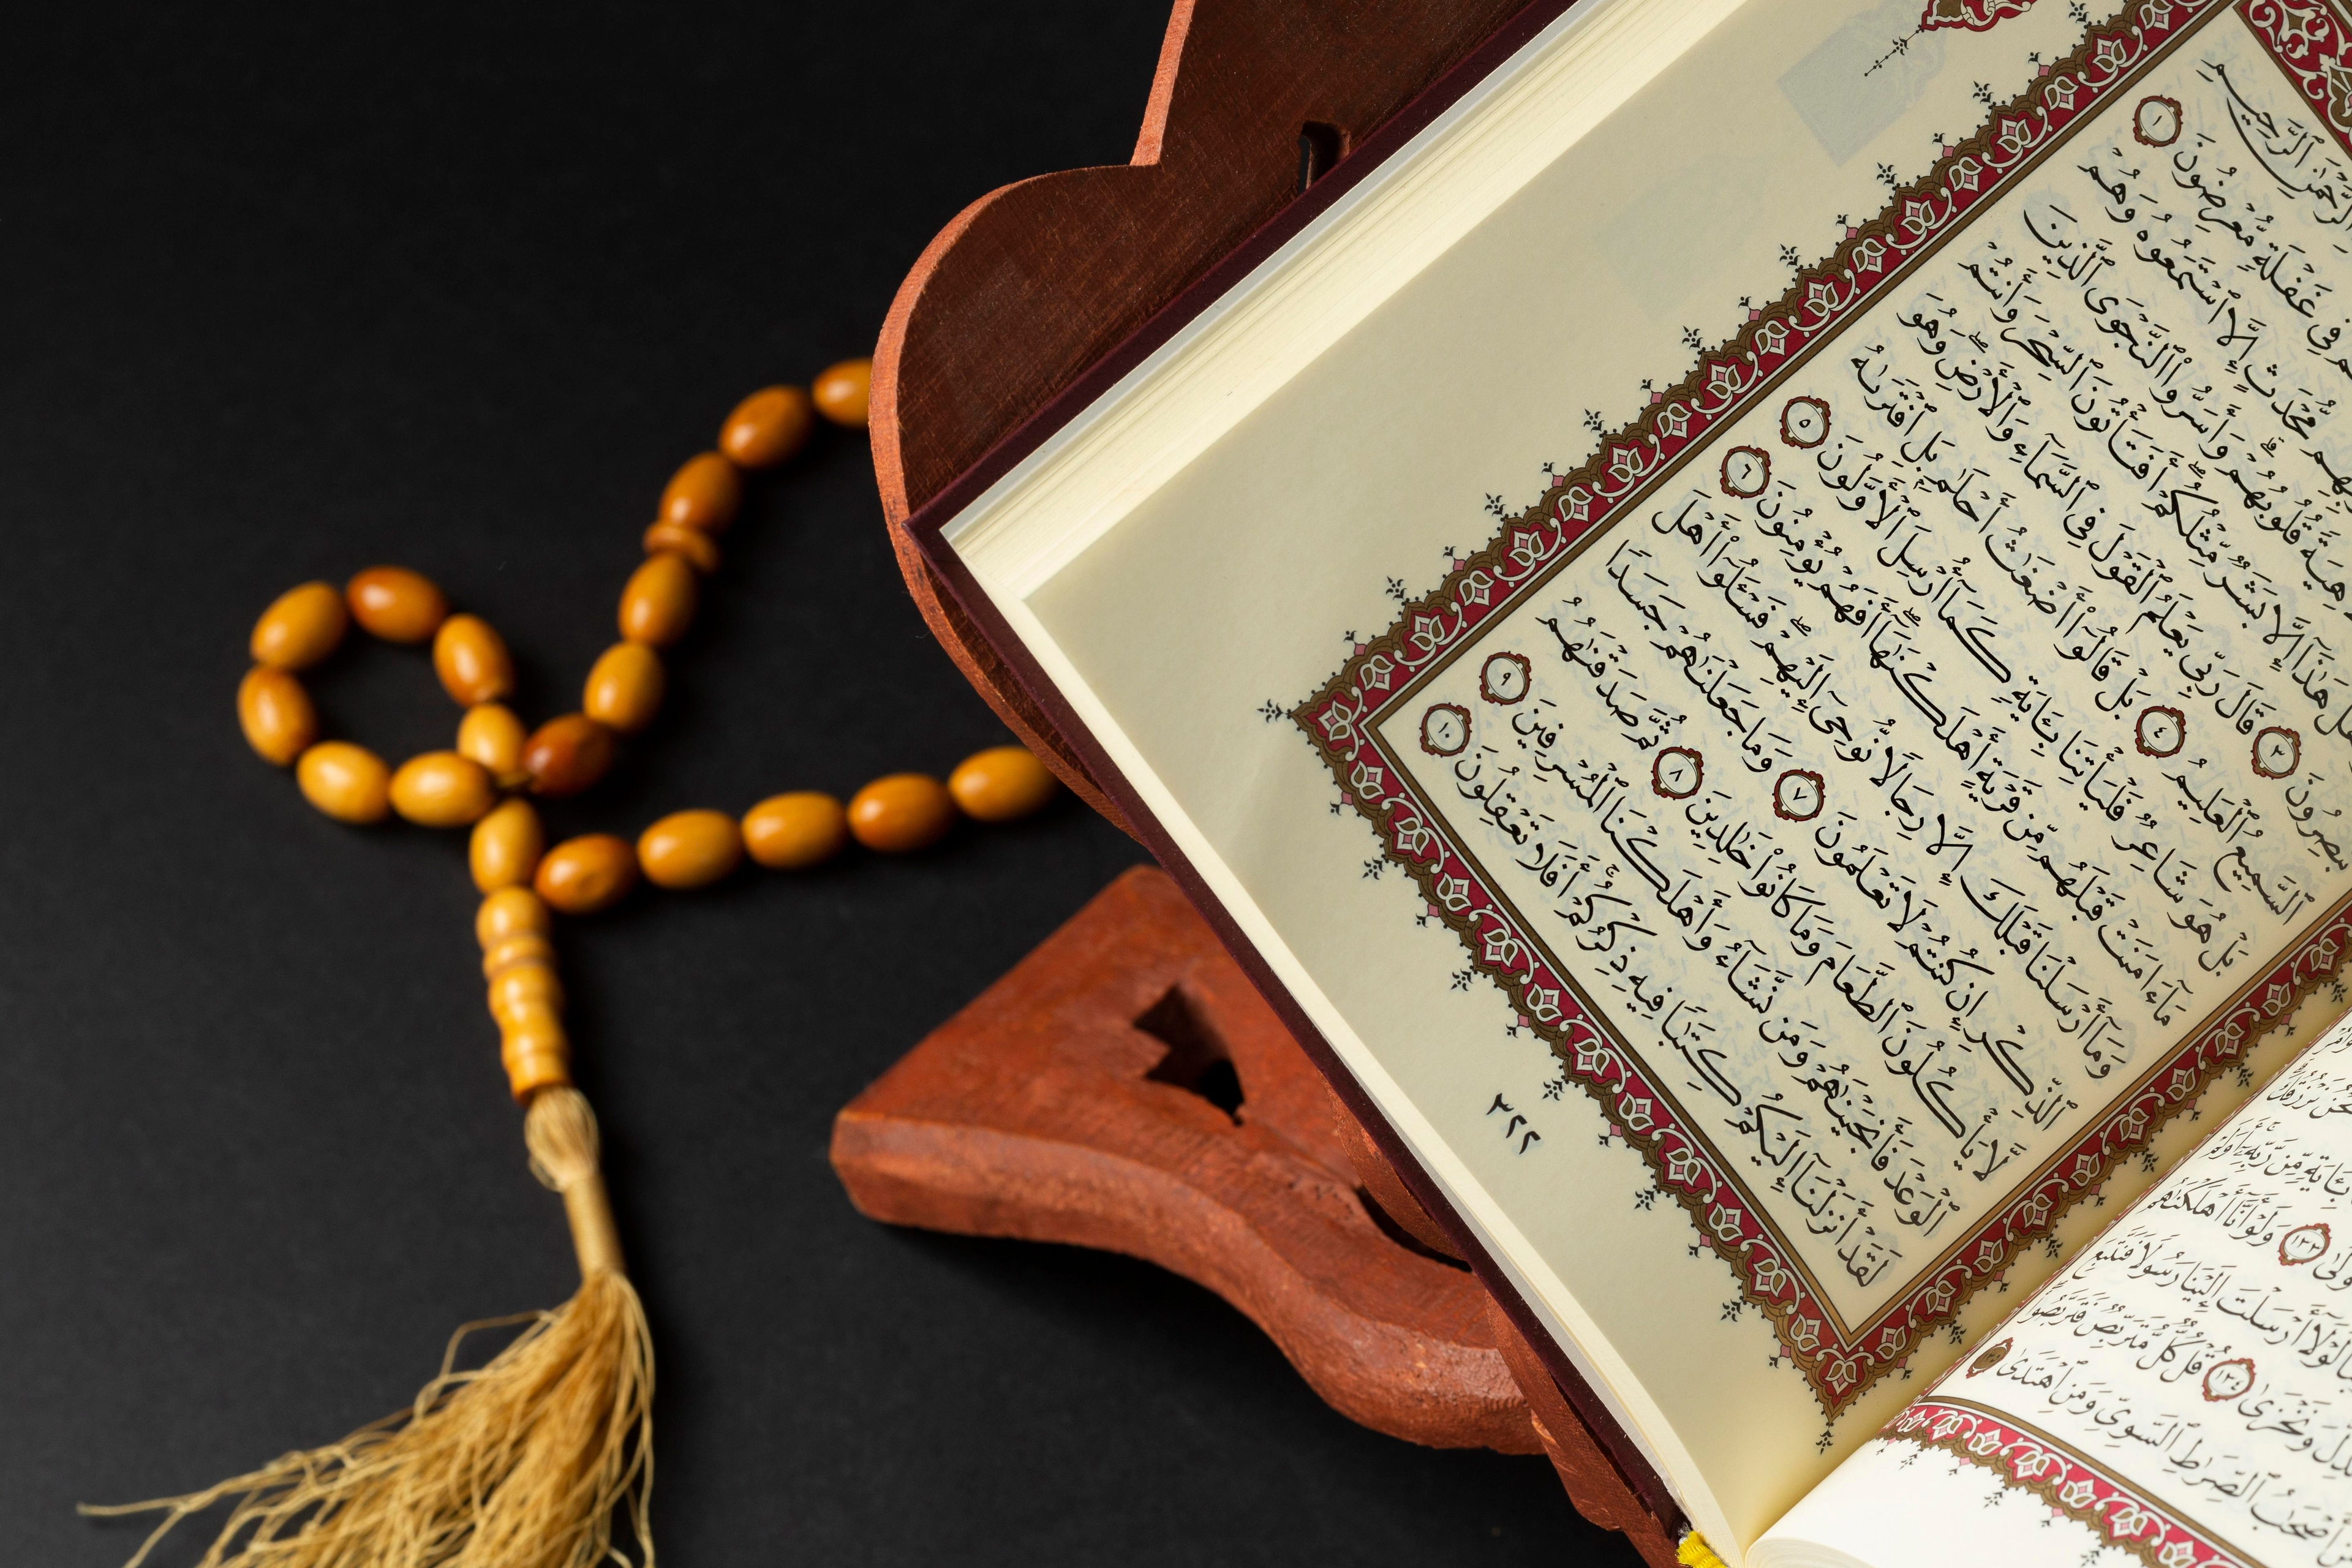 بِـَٔايَةٍ مِّن رَّبِّهِۦٓ أَوَلَمْ
وَلَوْ أَنَّآ أَهْلَكْنَٰهُم
لَوْلَآ أَرْسَلْتَ إِلَيْنَا رَسُولًا فَنَتَّبِعَ
وَنَخْزَىٰ ١٣٤ قُلْ كُلٌّ مُّتَرَبِّصٌ فَتَرَبَّصُوا۟
أَصْحَٰبُ ٱلصِّرَٰطِ ٱلسَّوِىِّ وَمَنِ ٱهْتَدَىٰ
ٱلرَّحْمَٰنِ ٱلرَّحِيمِ
فِى غَفْلَةٍ مُّعْرِضُونَ ١
مُّحْدَثٍ إِلَّا ٱسْتَمَعُوهُ وَهُمْ
لَاهِيَةً قُلُوبُهُمْ وَأَسَرُّوا۟ ٱلنَّجْوَى ٱلَّذِينَ
هَلْ هَٰذَآ إِلَّا بَشَرٌ مِّثْلُكُمْ أَفَتَأْتُونَ ٱلسِّحْرَ وَأَنتُمْ
تُبْصِرُونَ ٣ قَالَ رَبِّى يَعْلَمُ ٱلْقَوْلَ فِى ٱلسَّمَآءِ وَٱلْأَرْضِ وَهُوَ
ٱلسَّمِيعُ ٱلْعَلِيمُ ٤ بَلْ قَالُوٓا۟ أَضْغَٰثُ أَحْلَٰمٍۭ بَلِ ٱفْتَرَىٰهُ
بَلْ هُوَ شَاعِرٌ فَلْيَأْتِنَا بِـَٔايَةٍ كَمَآ أُرْسِلَ ٱلْأَوَّلُونَ ٥
مَآ ءَامَنَتْ قَبْلَهُم مِّن قَرْيَةٍ أَهْلَكْنَٰهَآ أَفَهُمْ يُؤْمِنُونَ ٦
وَمَآ أَرْسَلْنَا قَبْلَكَ إِلَّا رِجَالًا نُّوحِىٓ إِلَيْهِمْ فَسْـَٔلُوٓا۟ أَهْلَ
ٱلذِّكْرِ إِن كُنتُمْ لَا تَعْلَمُونَ ٧ وَمَا جَعَلْنَٰهُمْ جَسَدًا
لَّا يَأْكُلُونَ ٱلطَّعَامَ وَمَا كَانُوا۟ خَٰلِدِينَ ٨ ثُمَّ صَدَقْنَٰهُمُ
ٱلْوَعْدَ فَأَنجَيْنَٰهُمْ وَمَن نَّشَآءُ وَأَهْلَكْنَا ٱلْمُسْرِفِينَ ٩
لَقَدْ أَنزَلْنَآ إِلَيْكُمْ كِتَٰبًا فِيهِ ذِكْرُكُمْ أَفَلَا تَعْقِلُونَ ١٠
٣٢٢